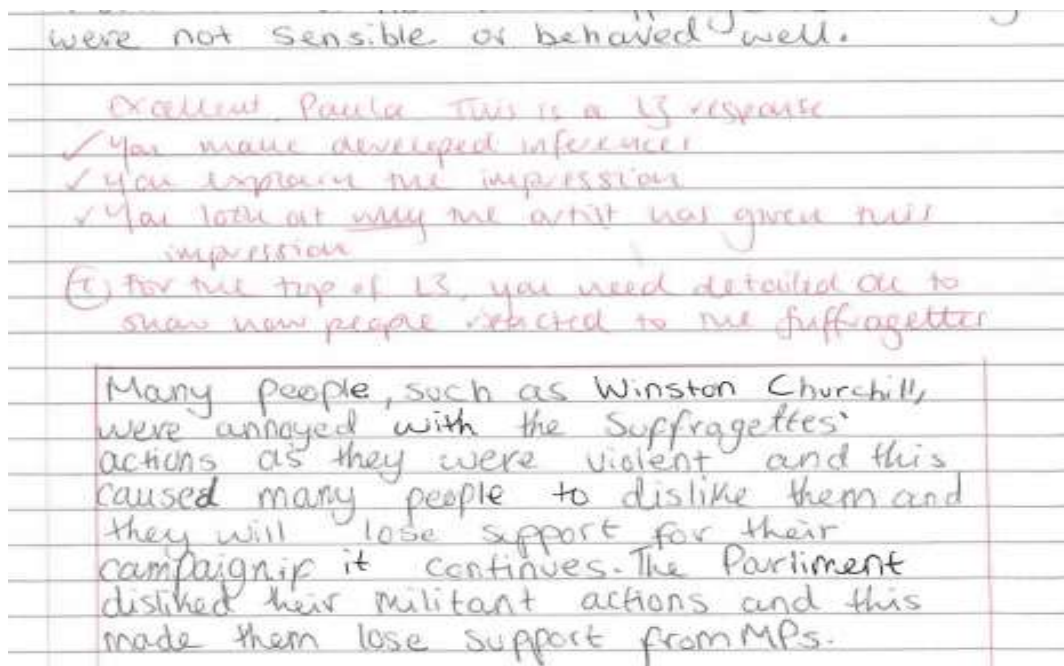 were not sensible or behaved well.
Excellent Paula This is a L3 response
✓ You make developed inferences
✓ You explain the impression
✓ You look at why the artist has given this
impression
(T) For the top of L3, you need detailed OK to
show how people reacted to the Suffragettes
Many people, such as Winston Churchill,
were annoyed with the Suffragettes'
actions as they were violent and this
caused many people to dislike them and
they will lose support for their
campaign if it continues. The Parliment
disliked their militant actions and this
made them lose support from MPs.